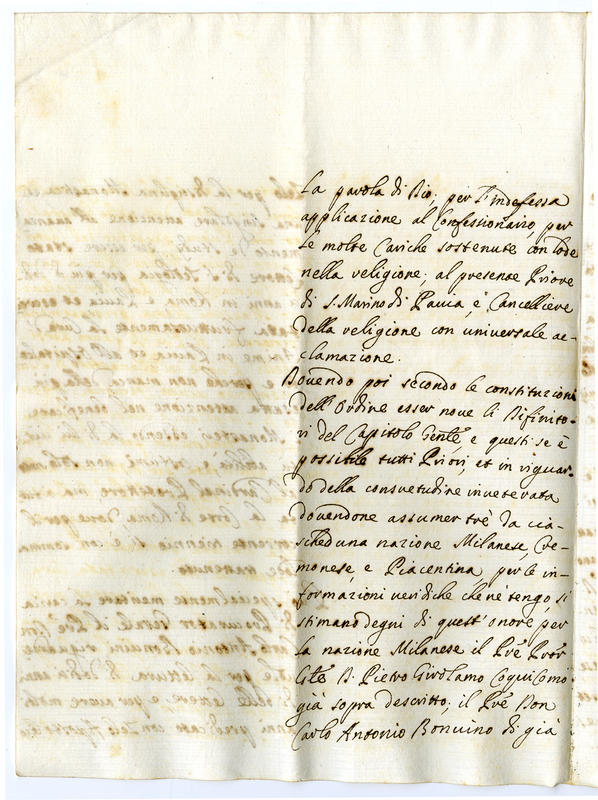 La parola di Dio; per l'indefessa
applicazione al Confessionario, per
le molte Cariche sostenute con lode
nella religione; al presente Priore
di S. Marino di Pavia, è Cancelliere
della religione con universale ac-
clamazione.
Dovendo poi secondo le constituzioni
dell'Ordine esser nove li Difinito-
ri del Capitolo Gen͞le, e questi se è
possibile tutti Priori, et in riguar-
do della consuetudine inveterata
dovendone assumer trè da cia-
scheduna nazione Milanese, Cre-
monese, e Piacentina, per le in-
formazioni veridiche che nè tengo, si
stimano degni di quest'onore per
la nazione Milanese il Pre͞ Pror͞
Gle͞ D. Pietro Girolamo
già sopra descritto, il Pre͞ Don
Carlo Antonio Bonvino di già